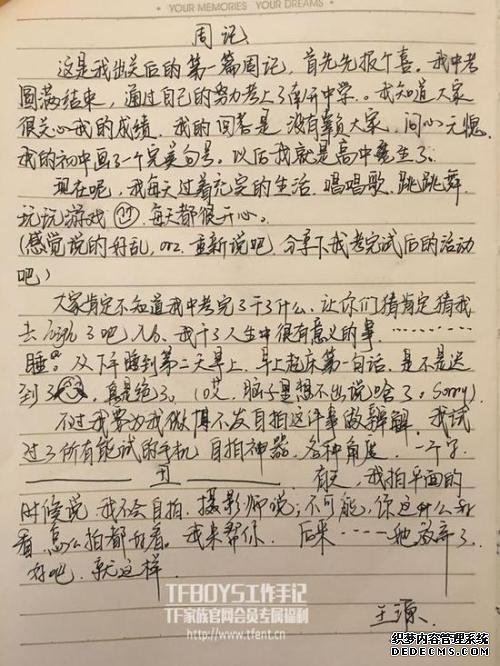 YOUR MEMORIES ★ YOUR DREAMS
周记
这是我出关后的第一篇周记,首先先报个喜。我中考
圆满结束,通过自己的努力考上了南开中学。我知道大家
很关心我的成绩,我的回答是没有辜负大家,问心无愧
我的初中画了一个完美句号。以后我就是高中学生了。
现在呢,我每天过着充实的生活.唱唱歌.跳跳舞.
玩玩游戏 每天都很开心。
(感觉说的好乱,orz.重新说吧.分享下我考完试后的活动
吧)
大家肯定不知道我中考完了干了什么.让你们猜肯定猜我
去 了吧.No.我干了人生中很有意义的事.………
睡。从下午睡到第二天早上.早上起床第一句话.是不是迟
到了 真是绝了。(哎.脑子里想不出说啥了。Sorry)
不过我要为我微博不发自拍这件事做辩解.我试
过了所有能试的手机.自拍神器.各种角度.一个字.
丑 有天,我拍平面的
时候说,我不会自拍.摄影师说:不可能,你这什么
看.怎么拍都好看。我来帮你.后来……她放弃了.
好吧.就这样.
王源.
TFBOYS工作手记
TF家族官网会员专属福利
http://www.tfent.cn
织梦内容管理系统
DEDECMS.COM